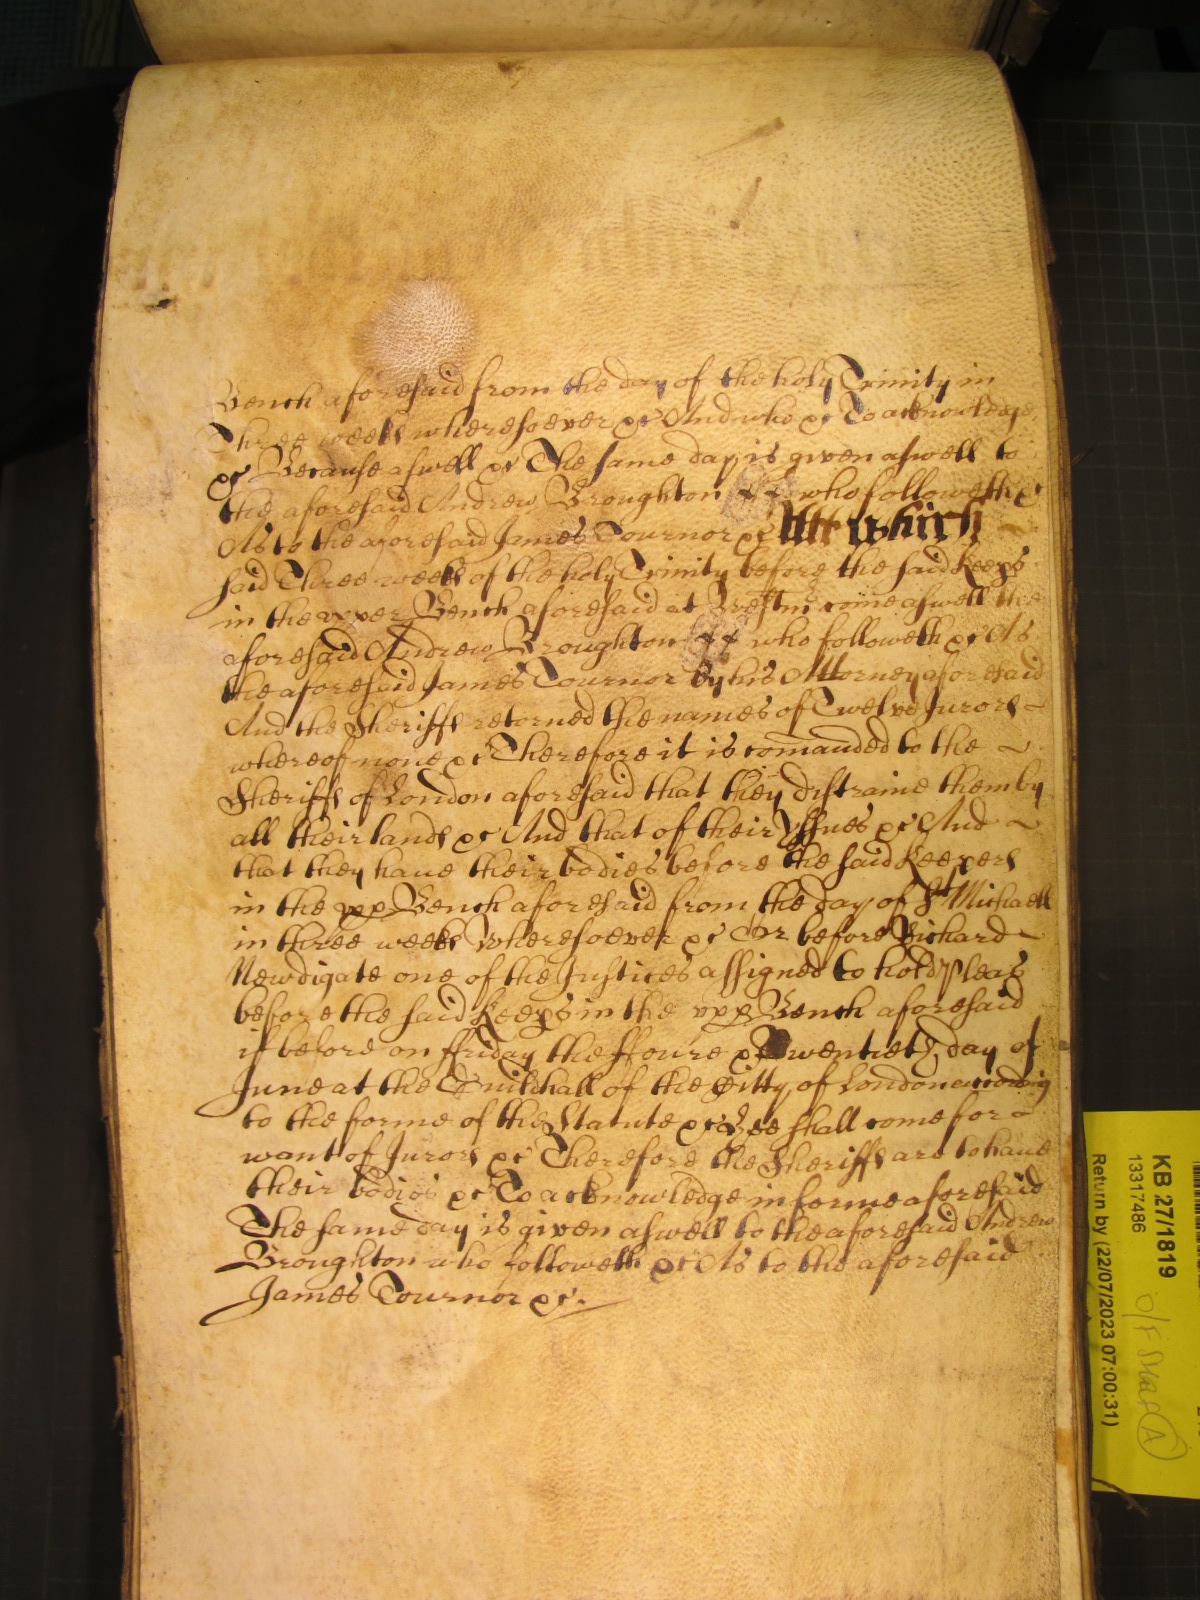 Bench aforesaid from the day of the holy Trinity in
Three weeks wheresoever &c And who &c To acknowledge
&c Because aswell &c The same day is given aswell to
the aforesaid Andrew Broughton who followeth &c
As to the aforesaid James Tournor &c Att which
said Three weeks of the holy Trinity before the said Keeps
in the upper Bench aforesaid at Westmr come aswell the
aforesaid Andrew Broughton who followeth &c As
the aforesaid James Tournor by his Attorney aforesaid
And the Sheriffs retorned the names of Twelve Jurors
whereof none &c Therefore it is comanded to the
Sheriffs of London aforesaid that they distraine them by
all their lands &c And that of their yssues &c And
that they haue their bodies before the said Keepers
in the upp Bench aforesaid from the day of St Michaell
in three weeks Wheresoever &c Or before Richard
Newdigate one of the Justices assigned to hold pleas
before the said Keeps in the upp Bench aforesaid
if before on ffriday the ffoure & Twentieth day of
June at the Guildhall of the Citty of London according
to the forme of the Statute &c hee shall come for
want of Jurors &c Therefore the Sheriffs are to haue
their bodies &c To acknowledge in forme aforesaid
The same day is given aswell to the aforesaid Andrew
Broughton who followeth &c As to the aforesaid
James Tournor &c.
KB 27/1819
13317486
Return by (22/07/2023 07:00:31)